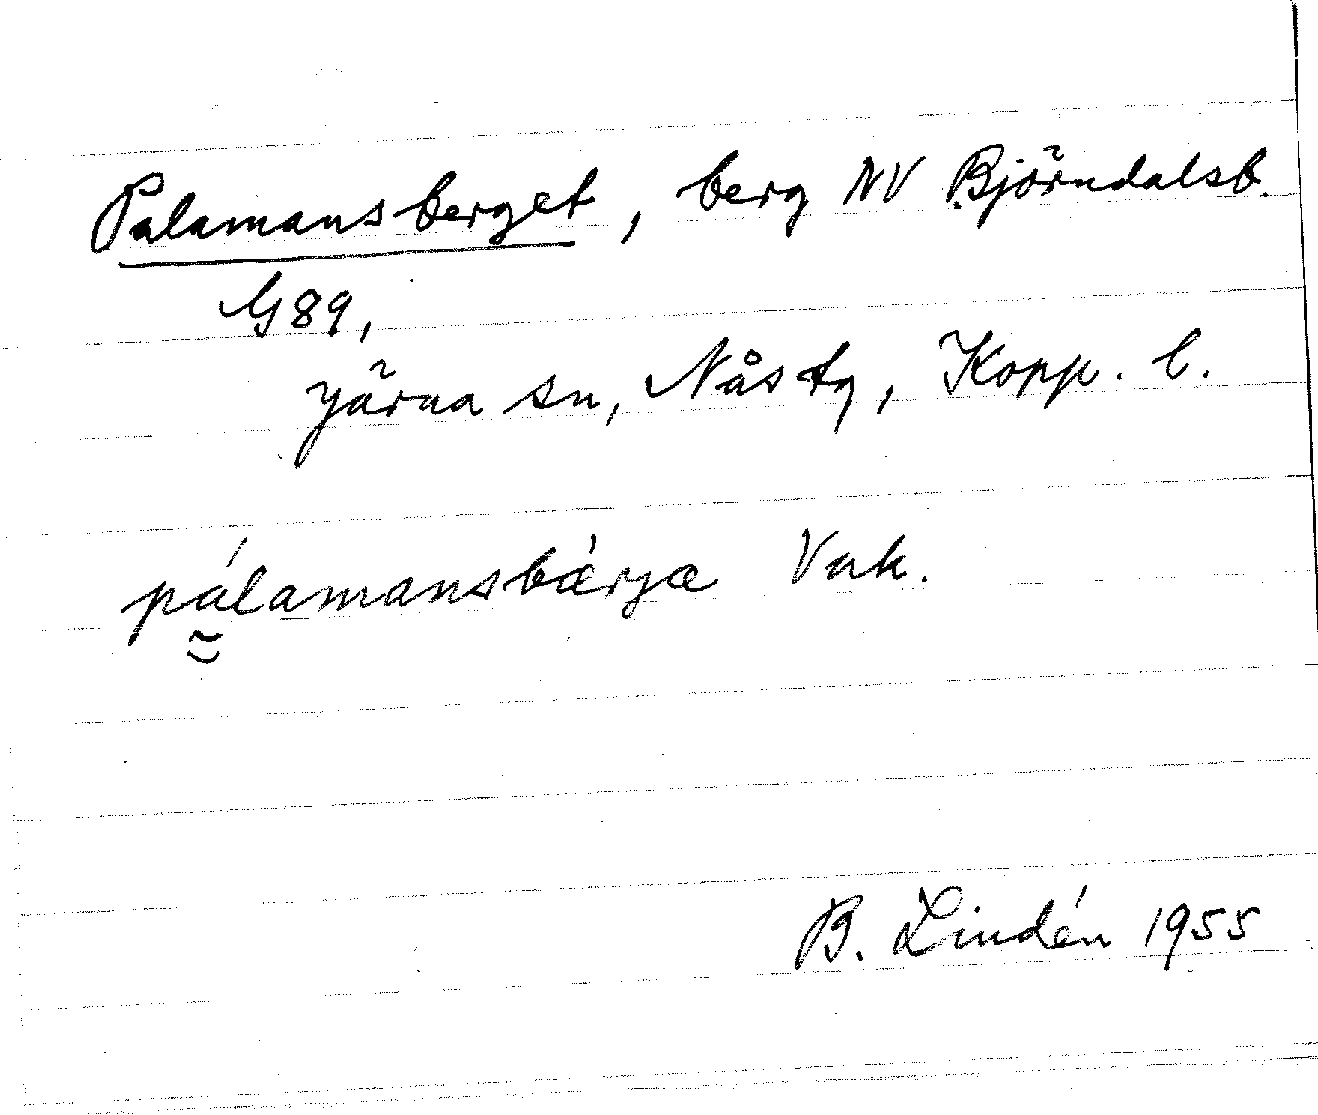 Palamansberget, berg NV Björndalsb.
G89,
Järna sn, Nås tg, Kopp. l.
pálamansbǽrjæ Vak.
B. Lindén 1955